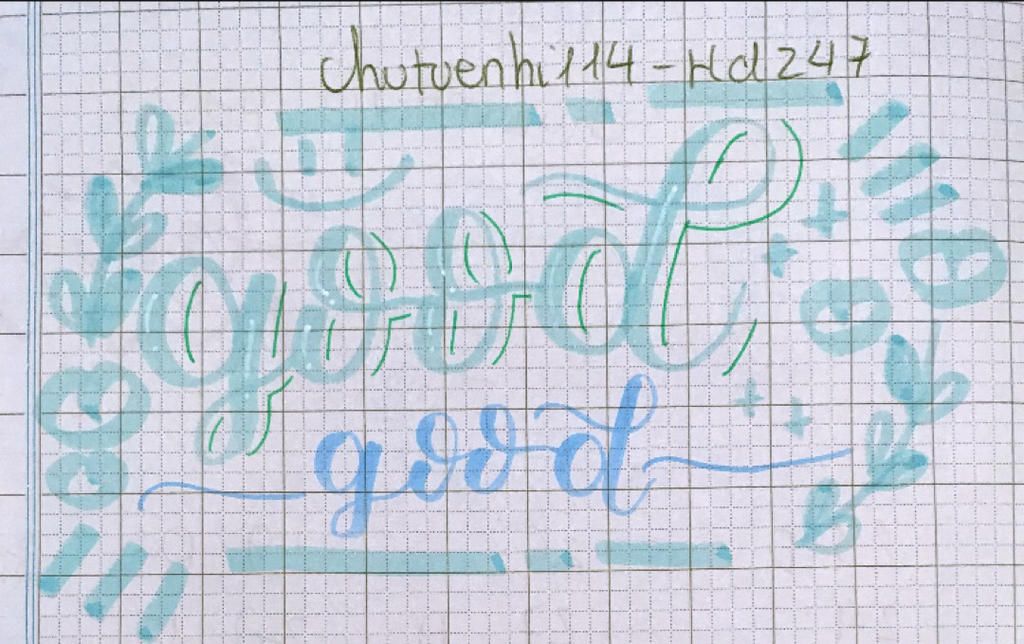 chutuenhi114 - Hd247
good
good